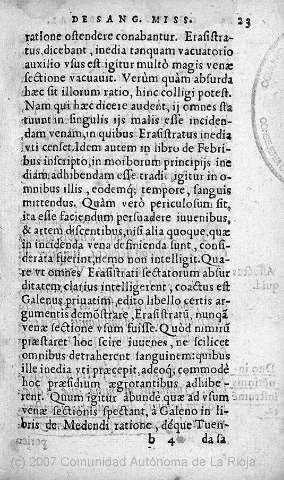 DE SANG. MISS. 23
ratione ostendere conabantur. Erasistra-
tus, dicebant, inedia tanquam vacuatorio
auxilio vsus est igitur multò magis venæ
sectione vacuauit. Verùm quàm absurda
hæc sit illorum ratio, hinc colligi potest.
Nam qui hæc dicere audent, ij omnes sta
tuunt in singulis ijs malis esse inciden-
dam venam, in quibus Erasistratus inedia
vti censet. Idem autem in libro de Febri-
bus inscripto, in morborum principijs ine
diam adhibendam esse tradit igitur in o-
mnibus illis, eodemq; tempore, sanguis
mittendus. Quàm verò periculosum sit,
ita esse faciendum persuadere iuuenibus,
& artem discentibus, nisi alia quoque, quæ
in incidenda vena definienda sunt, consi-
derata fuerint, nemo non intelligit. Qua-
re vt omnes Erasistrati sectatorum absur
ditatem clarius intelligerent, coactus est
Galenus, priuatim, edito libello certis ar-
gumentis demonstrare, Erasistratū, nunqā
venæ sectione vsum fuisse. Quòd nimirū
præstaret hoc scire iuuenes, ne scilicet
omnibus detraherent sanguinem: quibus
ille inedia vti præcepit, adeoq; commodè
hoc præsidium ægrotantibus adhibe-
rent. Quum igitur abundè quæ ad vsum
venæ sectionis spectant, à Galeno in li-
bris de Medendi ratione, déque Tuen-
b 4 da sa
(c) 2007 Comunidad Autónoma de La Rioja